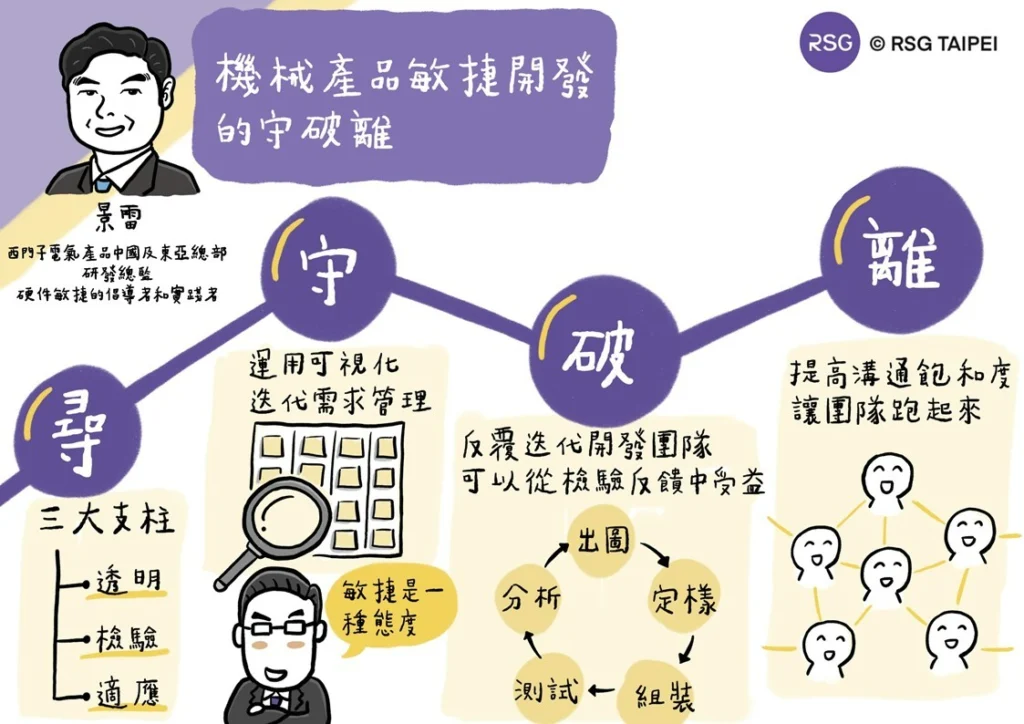 RSG © RSG TAIPEI
機械產品敏捷開發
的守破離
景雷
西門子電氣產品中國及東亞總部
研發總監
硬件敏捷的倡導者和實踐者
尋
三大支柱
透明
檢驗
適應
守
運用可視化
迭代需求管理
敏捷是一
種態度
破
反覆迭代開發團隊
可以從檢驗反饋中受益
出圖
定樣
組裝
測試
分析
離
提高溝通飽和度
讓團隊跑起來